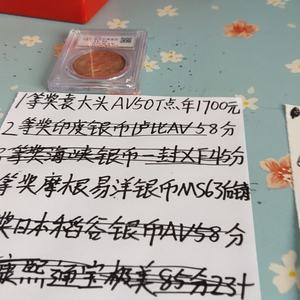 1等奖袁大头AV50T点年1700元
2等奖印度银币1卢比AV58分
等奖海峡银币一封XF45分
等奖摩根易洋银币MS63
奖日本稻谷银币AV58分
康熙通宝极美85分23十